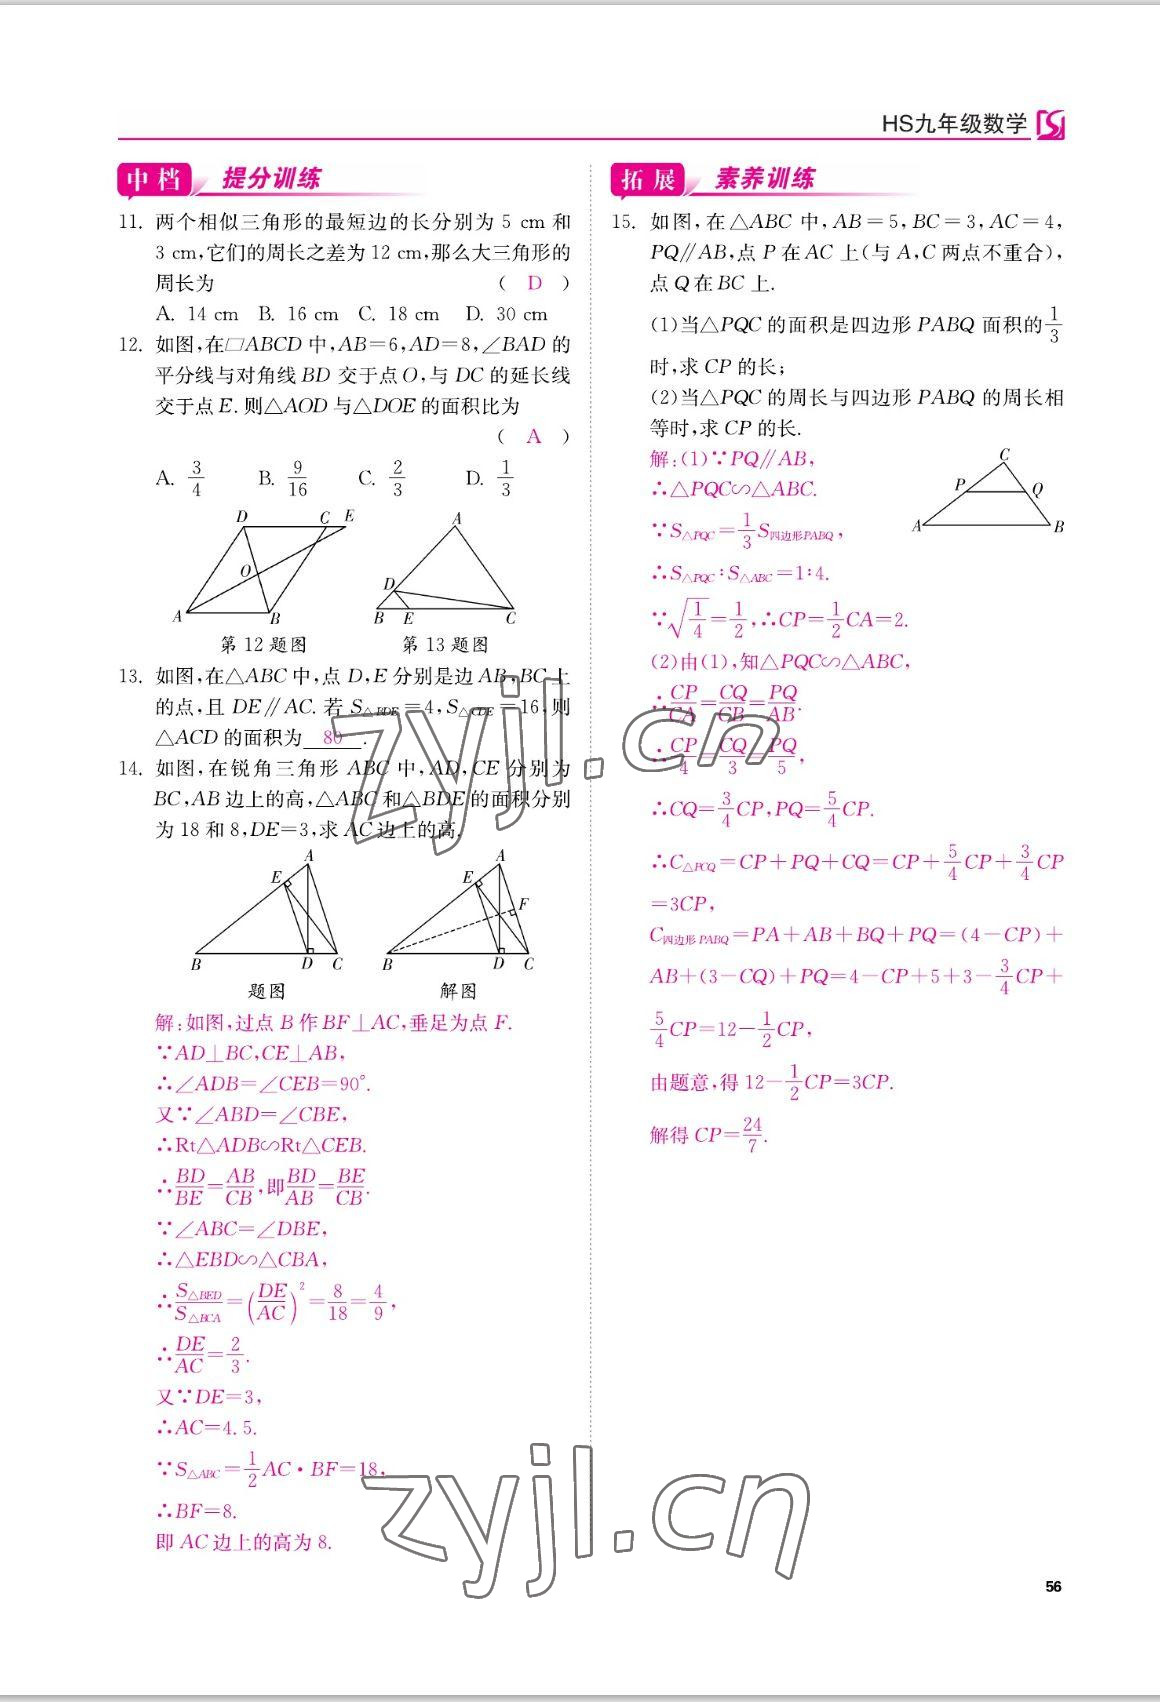 HS九年级数学
中档 提分训练
11. 两个相似三角形的最短边的长分别为 5 cm 和
3 cm,它们的周长之差为 12 cm,那么大三角形的
周长为 ( D )
A. 14 cm B. 16 cm C. 18 cm D. 30 cm
12. 如图,在▱ABCD 中,AB=6,AD=8,∠BAD 的
平分线与对角线 BD 交于点 O,与 DC 的延长线
交于点 E. 则△AOD 与△DOE 的面积比为
( A )
A. 3/4 B. 9/16 C. 2/3 D. 1/3
D C E
O
A B
第 12 题图
A
D
B E C
第 13 题图
13. 如图,在△ABC 中,点 D,E 分别是边 AB,BC 上
的点,且 DE∥AC. 若 S△BDE=4,S△CDE=16,则
△ACD 的面积为 80 .
14. 如图,在锐角三角形 ABC 中,AD,CE 分别为
BC,AB 边上的高,△ABC 和△BDE 的面积分别
为 18 和 8,DE=3,求 AC 边上的高.
A
E
B D C
题图
A
E
F
B D C
解图
解:如图,过点 B 作 BF⊥AC,垂足为点 F.
∵AD⊥BC,CE⊥AB,
∴∠ADB=∠CEB=90°.
又∵∠ABD=∠CBE,
∴Rt△ADB∽Rt△CEB.
∴BD/BE=AB/CB,即BD/AB=BE/CB.
∵∠ABC=∠DBE,
∴△EBD∽△CBA,
∴S△BED/S△BCA=(DE/AC)²=8/18=4/9,
∴DE/AC=2/3.
又∵DE=3,
∴AC=4.5.
∵S△ABC=1/2 AC·BF=18,
∴BF=8.
即 AC 边上的高为 8.
拓展 素养训练
15. 如图,在△ABC 中,AB=5,BC=3,AC=4,
PQ∥AB,点 P 在 AC 上(与 A,C 两点不重合),
点 Q 在 BC 上.
(1)当△PQC 的面积是四边形 PABQ 面积的1/3
时,求 CP 的长;
(2)当△PQC 的周长与四边形 PABQ 的周长相
等时,求 CP 的长.
C
P Q
A B
解:(1)∵PQ∥AB,
∴△PQC∽△ABC.
∵S△PQC=1/3 S四边形PABQ,
∴S△PQC:S△ABC=1:4.
∵√(1/4)=1/2,∴CP=1/2 CA=2.
(2)由(1),知△PQC∽△ABC,
∴CP/CA=CQ/CB=PQ/AB.
∴CP/4=CQ/3=PQ/5,
∴CQ=3/4 CP,PQ=5/4 CP.
∴C△PCQ=CP+PQ+CQ=CP+5/4 CP+3/4 CP
=3CP,
C四边形PABQ=PA+AB+BQ+PQ=(4-CP)+
AB+(3-CQ)+PQ=4-CP+5+3-3/4 CP+
5/4 CP=12-1/2 CP,
由题意,得 12-1/2 CP=3CP.
解得 CP=24/7.
zyjl.cn
zyjl.cn
56